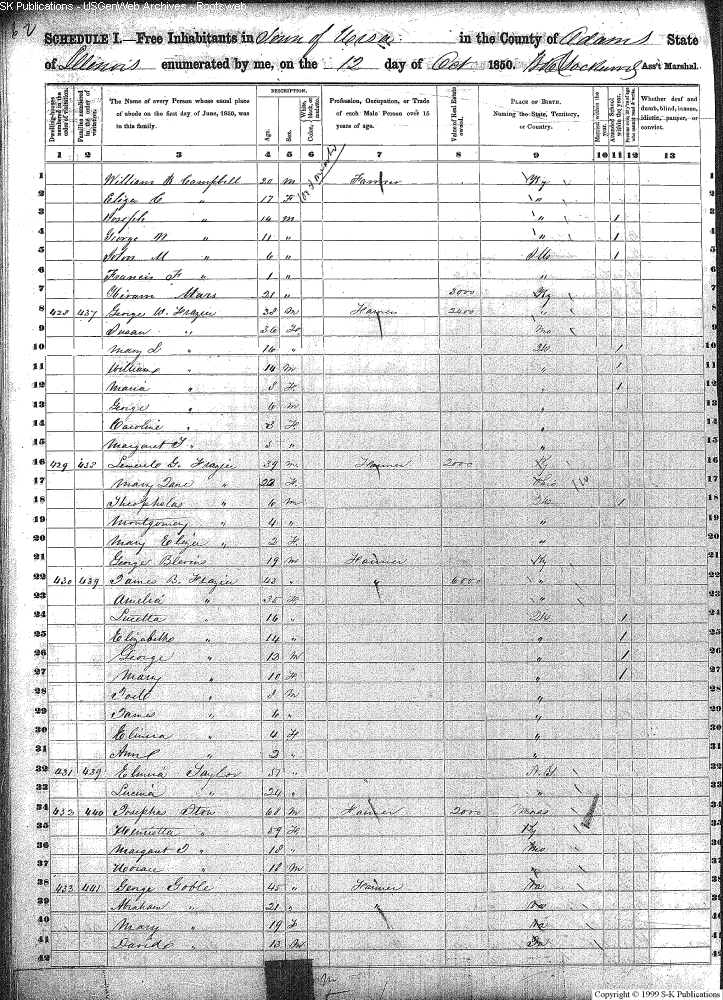 SK Publications - USGenWeb Archives - Rootsweb
SCHEDULE I.—Free Inhabitants in Town of Ursa in the County of Adams State
of Illinois enumerated by me, on the 12 day of Oct 1850. Ass't Marshal.
Dwelling-houses numbered in the order of visitation.
Families numbered in the order of visitation.
The Name of every Person whose usual place of abode on the first day of June, 1850, was in this family.
DESCRIPTION.
Age.
Sex.
Color, White, black, or mulatto.
Profession, Occupation, or Trade of each Male Person over 15 years of age.
Value of Real Estate owned.
PLACE OF BIRTH. Naming the State, Territory, or Country.
Married within the year.
Attended School within the year.
Whether deaf and dumb, blind, insane, idiotic, pauper, or convict.
1 2 3 4 5 6 7 8 9 10 11 12 13
1 William Campbell 20 M Farmer Ky 1
2 Eliza C " 17 F " 2
3 Joseph " 14 M " 1 3
4 George W " 11 " " 1 4
5 John M " 6 " Ills 1 5
6 Francis F " 1 " " 6
7 Hiram Mars 21 " 3000 Ky 7
8 428 437 George W. Frazier 38 M Farmer 2400 " 8
9 Susan " 36 F Mo 9
10 Mary L " 16 " Ill 1 10
11 William " 14 M " 1 11
12 Maria " 8 F " 1 12
13 George " 6 M " 13
14 Caroline " 3 F " 14
15 Margaret " " " 15
16 429 438 G. Frazier 39 M Farmer 2000 Ky 16
17 Mary Jane " F Ohio 17
18 Theophelas " 6 M Ill 1 18
19 Montgomery " 4 " " 19
20 Mary Eliza " 2 F " 20
21 George Blevins 19 M Farmer Ky 21
22 430 439 James B. Frazier 43 " " 6000 " 22
23 Amelia " 35 F " 23
24 Luetta " 16 " Ill 1 24
25 Elizabeth " 14 " " 1 25
26 George " 12 M " 1 26
27 Mary " 10 F " 1 27
28 " 8 M " 28
29 James " 6 " " 29
30 Elmira " 4 F " 30
31 Ann " 2 " " 31
32 431 439 Taylor 51 " N.Y. 32
33 Lucina " 24 " " 33
34 432 440 Josephas 68 M Farmer 2000 Mass 34
35 Henrietta " 59 F Ky 35
36 Margaret J " 18 " Mo 36
37 Horace " 18 M " 37
38 433 441 George Goble 45 " Farmer Va 38
39 Abraham " 21 " " Va 39
40 Mary " 19 F Va 40
41 David " 13 M 41
42 42
Copyright © 1999 S-K Publications